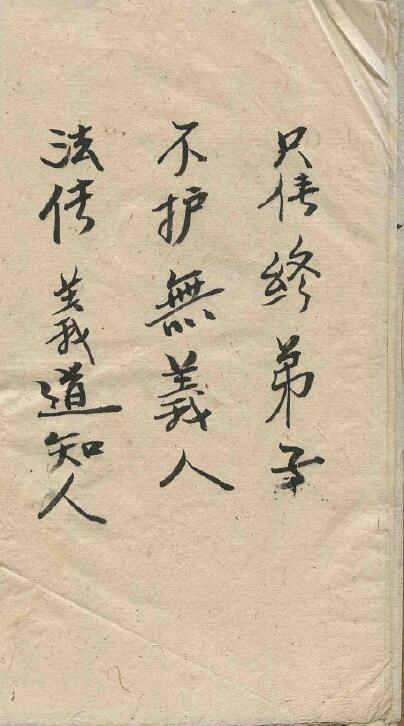 只传终弟子
不护無義人
法传義道知人